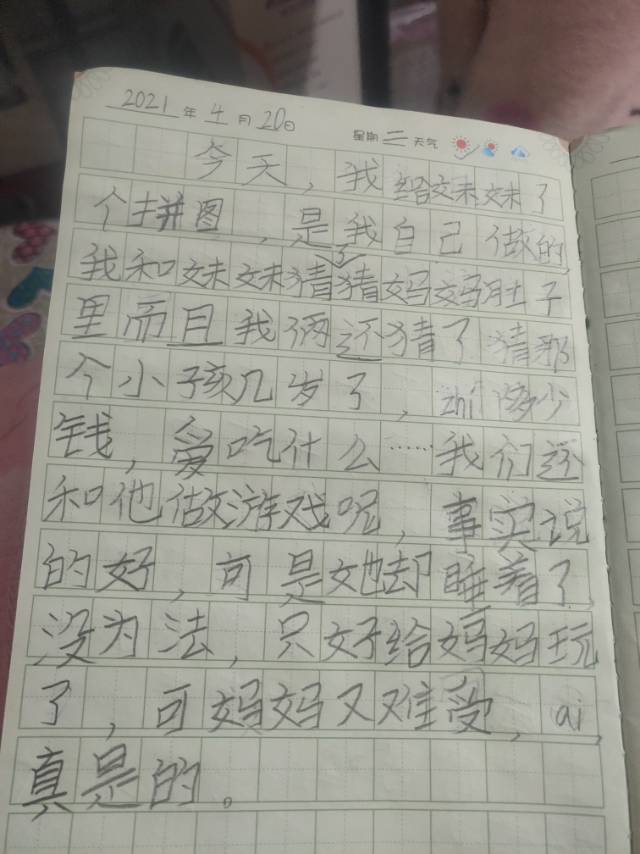 2021年4月20日 星期二 天气
今天，我给妹妹了
个拼图，是我自己做的，
我和妹妹猜了猜妈妈肚子
里而且我俩还猜了猜那
个小孩几岁了，zhi多少
钱，爱吃什么……我们还
和他做游戏呢，事实说
的好，可是她却睡着了，
没为法，只好给妈妈玩
了，可妈妈又难受，ai，
真是的。